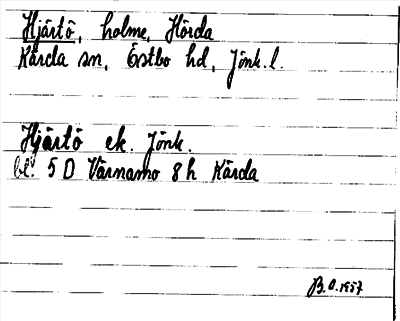 Hjärtö, holme, Hörda
Kärda sn, Östbo hd, Jönk. l.
Hjärtö ek. Jönk.
bl. 5 D Värnamo 8 h Kärda
B.O. 1957